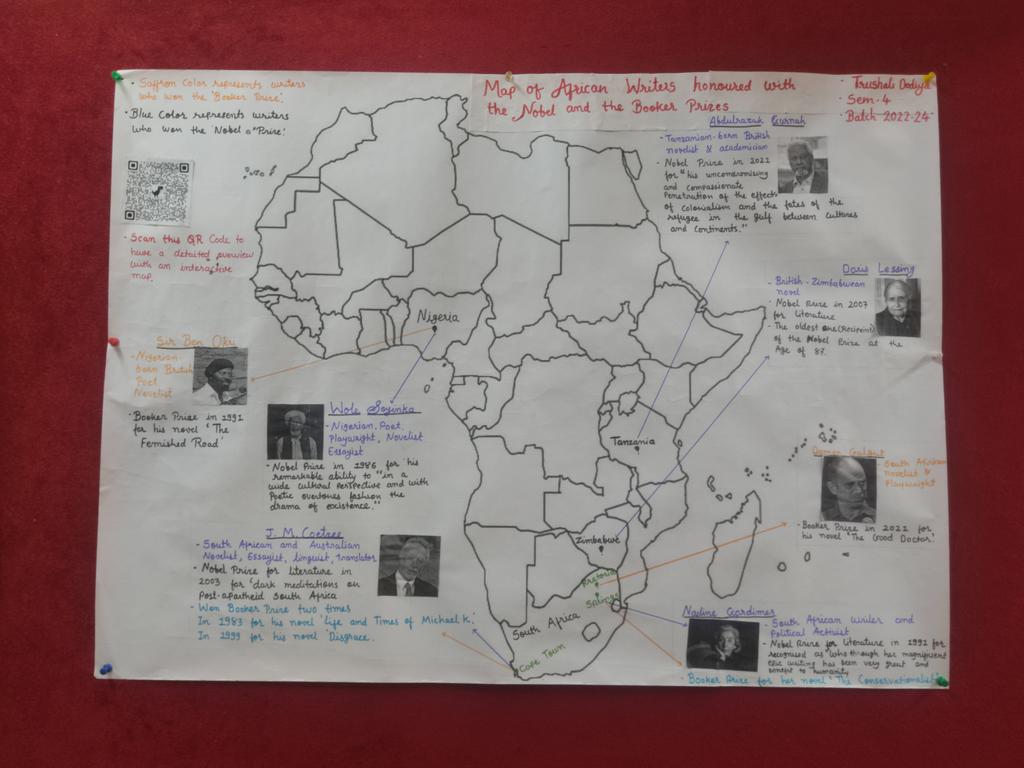 Saffron Color represents writers
who won the 'Booker Prize'.
Blue Color represents writers
who won the 'Nobel Prize'
Scan this QR Code to
have a detailed overview
with an interactive
map.
Map of African Writers honoured with
the Nobel and the Booker Prizes
- Trushali Dodiya
- Sem-4
- Batch 2022-24
Abdulrazak Gurnah
- Tanzanian-born British
novelist & academician
- Nobel Prize in 2021
for "his uncompromising
and compassionate
Penetration of the effects
of colonialism and the fates of the
refugee in the gulf between cultures
and continents."
Doris Lessing
- British-Zimbabwean
novel
- Nobel Prize in 2007
for literature
- The oldest one (Recipient)
of the Nobel Prize at the
Age of 87.
Nigeria
Sir Ben Okri
- Nigerian-
born British
Poet
Novelist
- Booker Prize in 1991
for his novel 'The
Femished Road'
Wole Soyinka
- Nigerian, Poet,
Playwright, Novelist
Essayist
- Nobel Prize in 1986 for his
remarkable ability to "in a
wide cultural perspective and with
Poetic overtones fashion the
drama of existence."
Tanzania
Damon Galgut
- South African
novelist &
Playwright
- Booker Prize in 2021 for
his novel 'The Good Doctor'
J. M. Coetzee
- South African and Australian
Novelist, Essayist, linguist, translator
- Nobel Prize for literature in
2003 for 'dark meditations on
Post-apartheid South Africa
- Won Booker Prize two times
In 1983 for his novel 'Life and Times of Michael K.'
In 1999 for his novel 'Disgrace.
Zimbabwe
Pretoria
Springs
South Africa
Cape Town
Nadine Gordimer
- South African writer and
Political Activist
- Nobel Prize for Literature in 1991 for
recognised as "who through her magnificent
Epic writing has been very great and
benefit to humanity
- Booker Prize for her novel 'The Conservationalist'